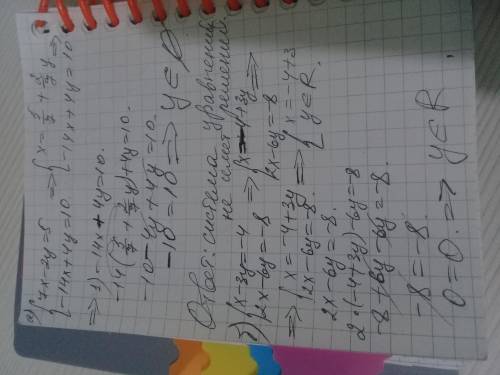 а) {7x-2y=5 {-14x+4y=10 => {x=5/7+2/7y {-14x+4y=10 =>
=> 1) -14x+4y=10.
-14(5/7+2/7y)+4y=10.
-10-4y+4y=10.
-10=10 => y∈R
Ответ: система уравнений
не имеет решений.
{x-3y=-4 {2x-6y=-8 => {x=-4+3y {2x-6y=8 =>
=> {x=-4+3y {2x-6y=-8. => {x=-4+3 {y∈R.
2x-6y=-8.
2·(-4+3y)-6y=8
-8+6y-6y=-8.
-8=-8.
0=0. => y∈R